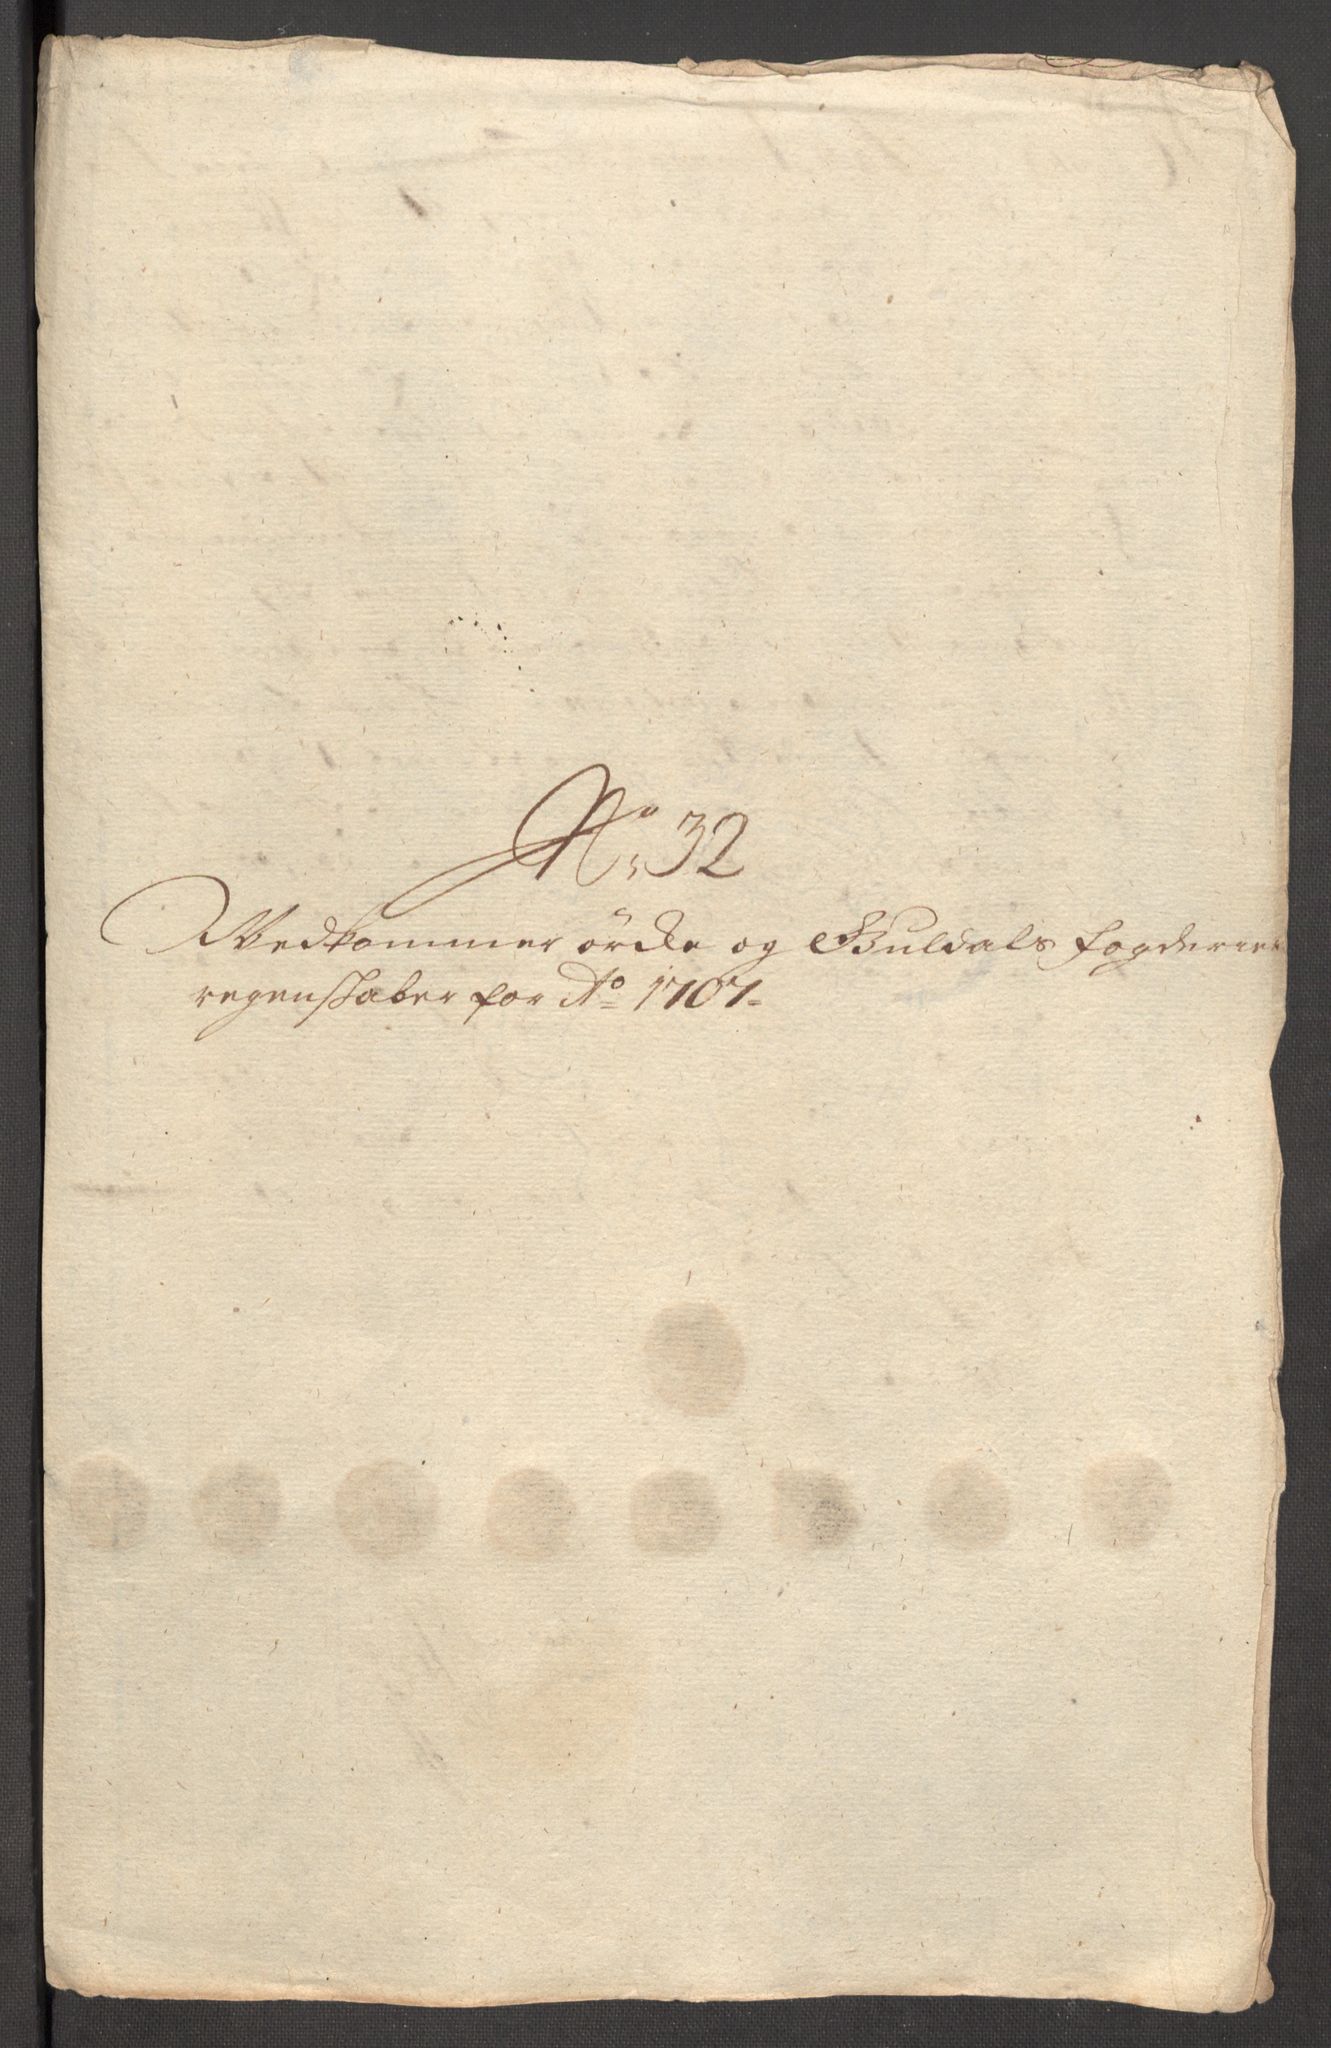 No 32
Vedkommer órcke og Guldals fogderier
regenskaber for Ao 1707